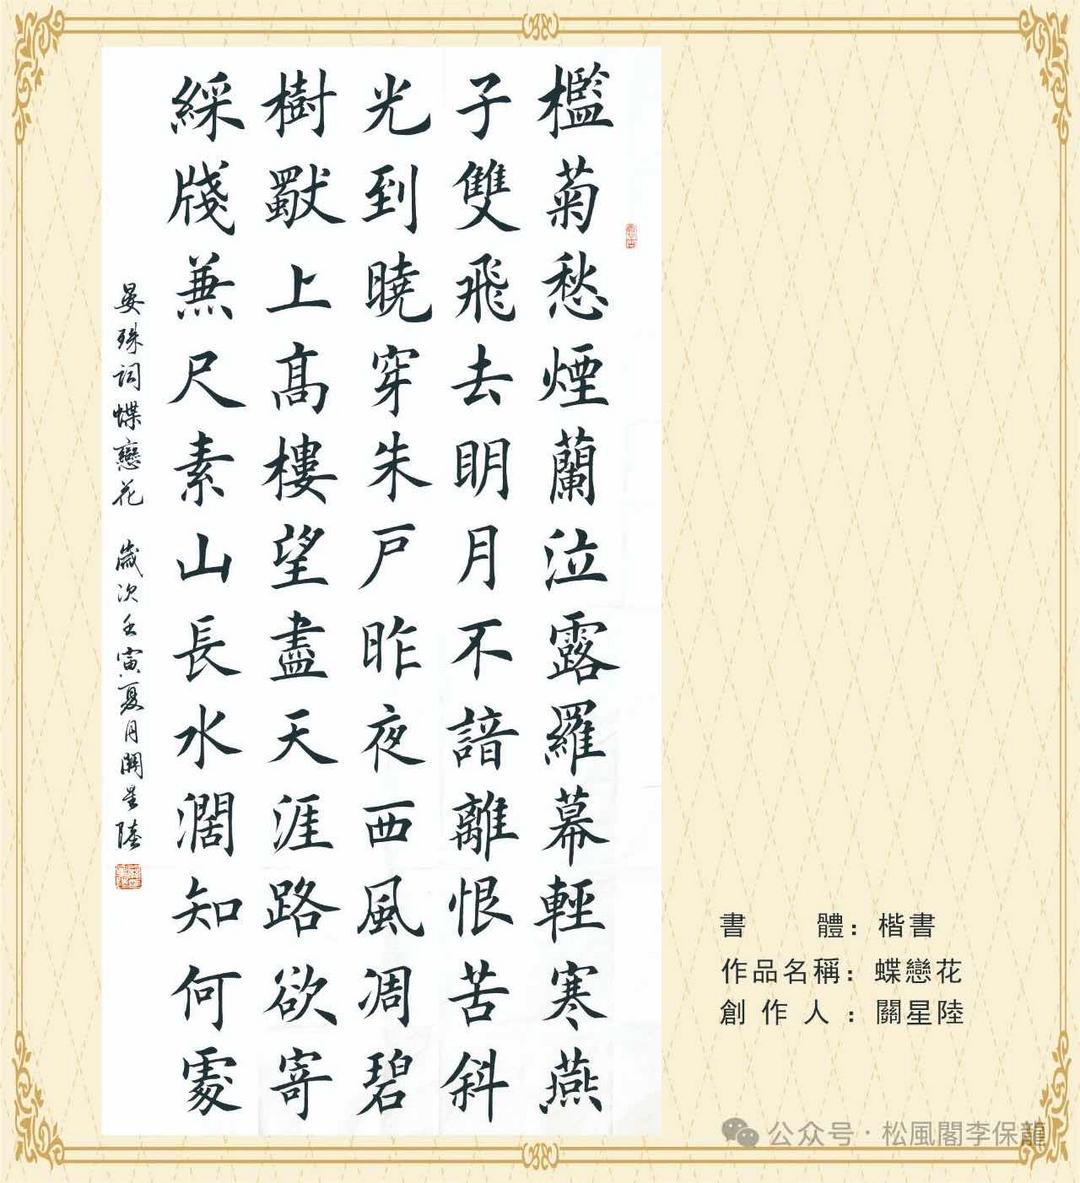 檻菊愁煙蘭泣露羅幕輕寒燕
子雙飛去明月不諳離恨苦斜
光到曉穿朱戶昨夜西風凋碧
樹獸上高樓望盡天涯路欲寄
綵牋兼尺素山長水濶知何處
晏殊詞蝶戀花 歲次壬寅夏月關星陸
書 體：楷書
作品名稱：蝶戀花
創作人：關星陸
公众号·松風閣李保龍